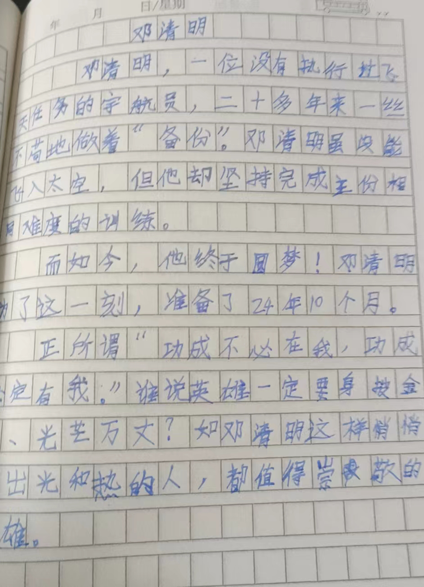 年 月 日/星期
邓清明
邓清明，一位没有执行过飞
天任务的宇航员，二十多年来一丝
不苟地做着“备份”。邓清明虽没能
飞入太空，但他却坚持完成主份相
同难度的训练。
而如今，他终于圆梦！邓清明
为了这一刻，准备了24年10个月。
正所谓“功成不必在我，功成
定有我。”谁说英雄一定要身披金
、光芒万丈？如邓清明这样悄悄
出光和热的人，都值得崇敬的
雄。